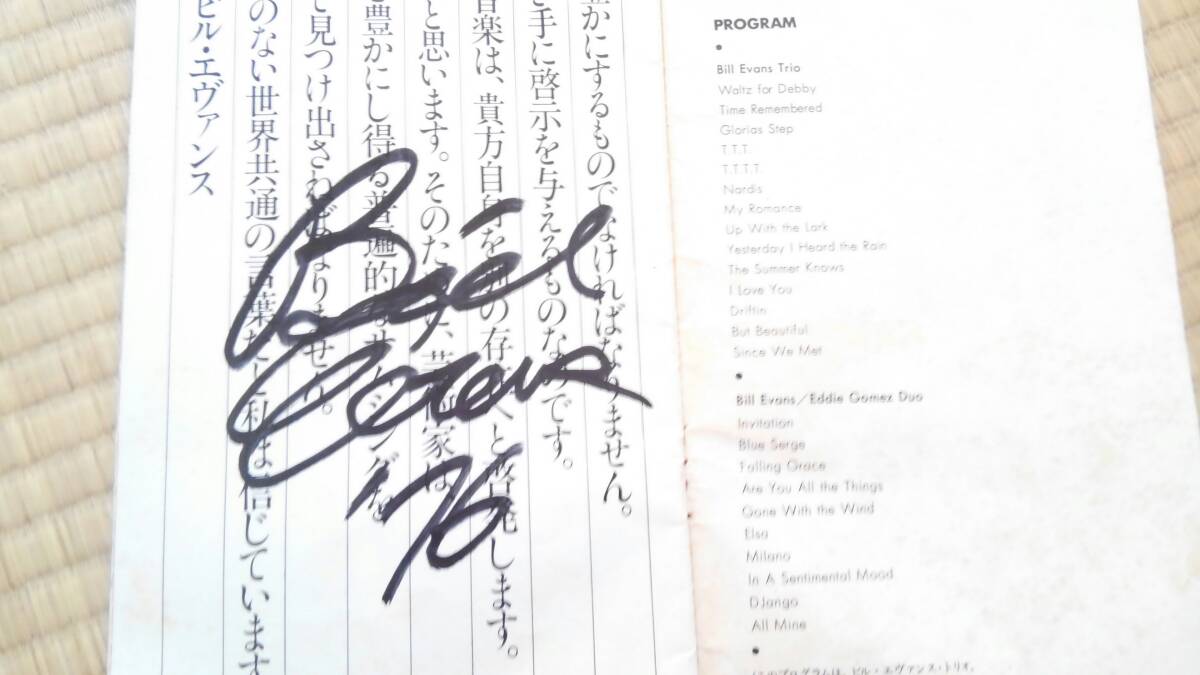 豊かにするものでなければなりません。
手に啓示を与えるものなのです。
音楽は、貴方自身を の存在へと啓発します。
と思います。そのために、芸術家は、
豊かにし得る普遍的なサムシングを
で見つけ出さねばなりません。
のない世界共通の言葉だと私は信じています
ビル・エヴァンス
Bill
Evans
'76
PROGRAM
•
Bill Evans Trio
Waltz for Debby
Time Remembered
Glorias Step
T.T.T.
T.T.T.T.
Nardis
My Romance
Up With the Lark
Yesterday I Heard the Rain
The Summer Knows
I Love You
Driftin
But Beautiful
Since We Met
•
Bill Evans/Eddie Gomez Duo
Invitation
Blue Serge
Falling Grace
Are You All the Things
Gone With the Wind
Elsa
Milano
In A Sentimental Mood
DJango
All Mine
•
(このプログラムは、ビル・エヴァンス・トリオ、